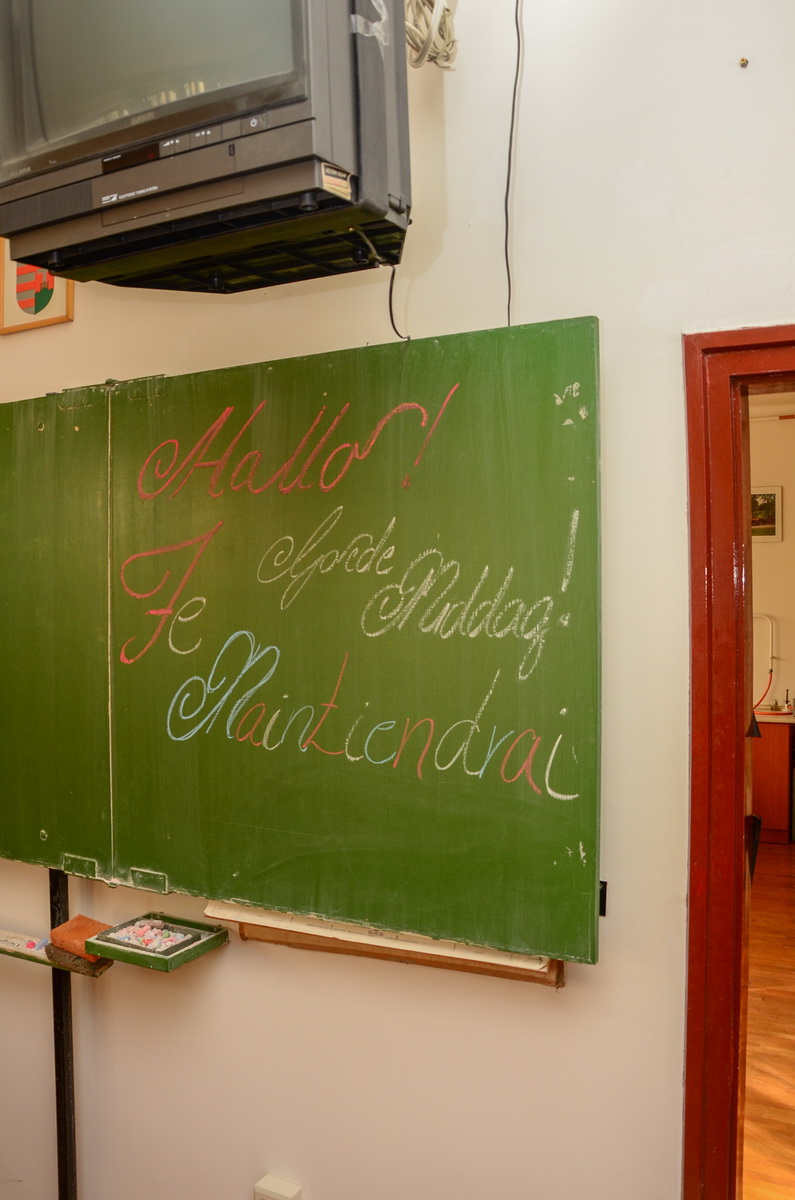 Hallo!
Goede
Middag!
Je
Maintiendrai